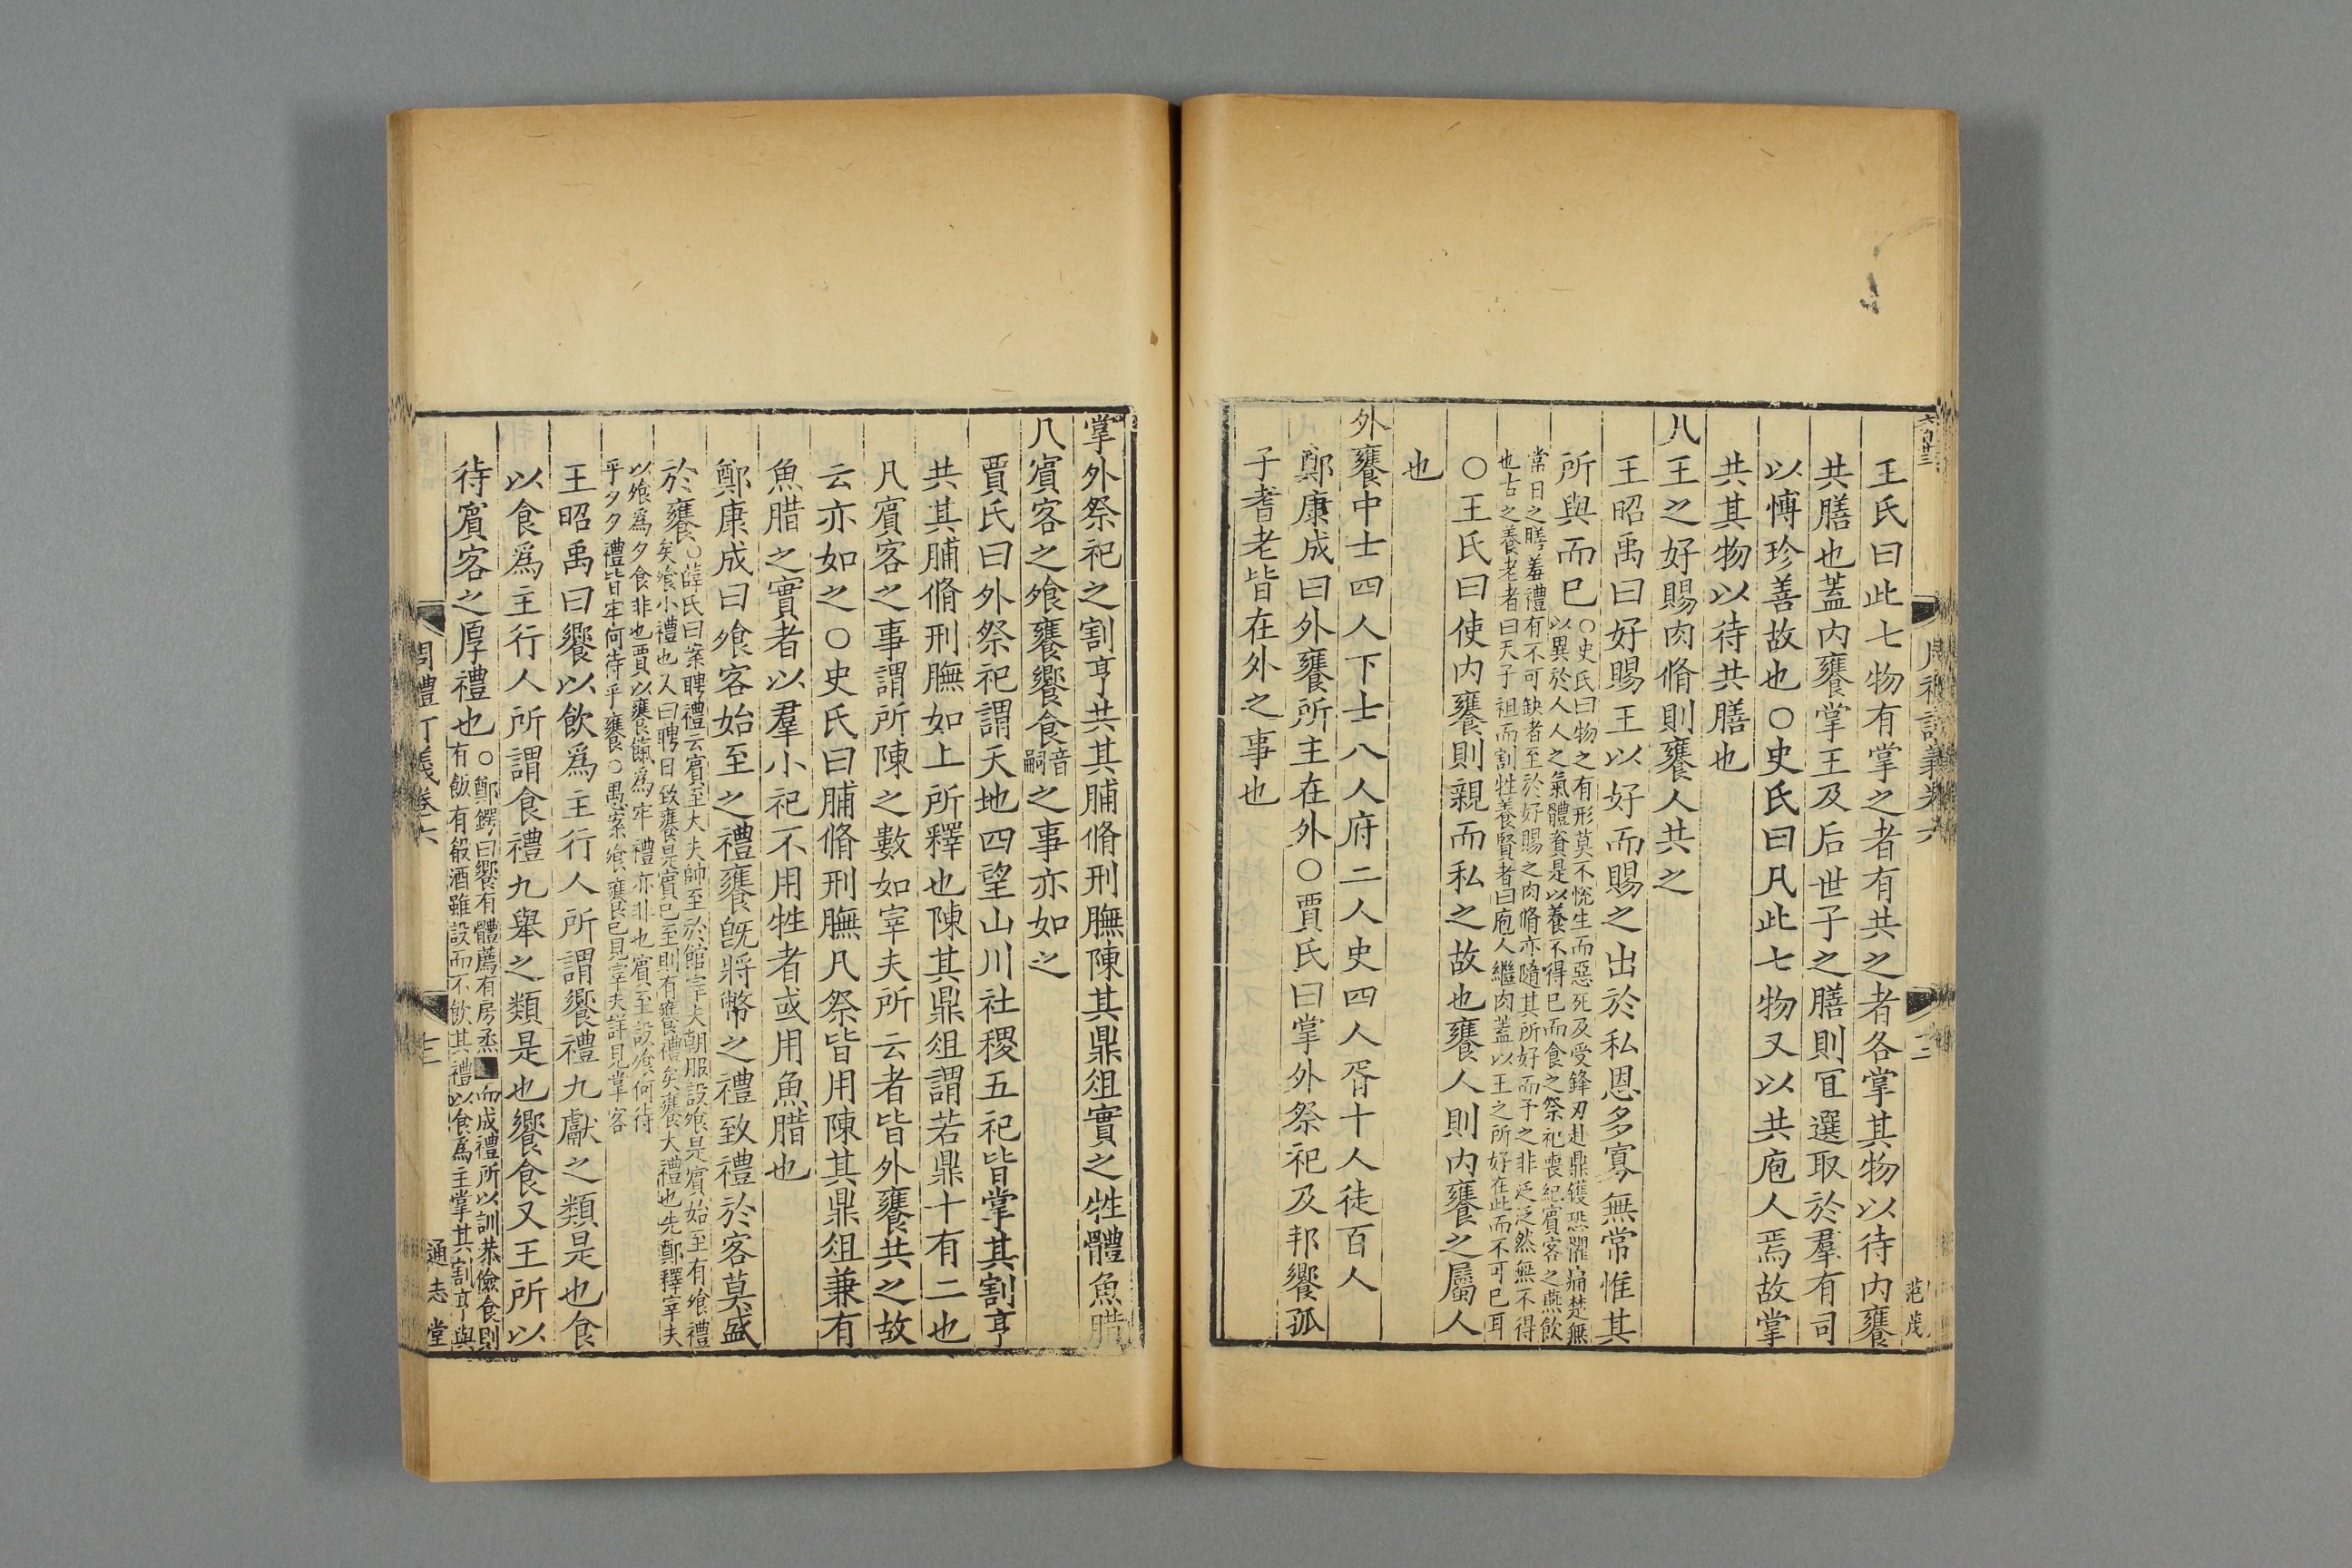 王氏曰此七物有掌之者有共之者各掌其物以待内饔
共膳也蓋内饔掌王及后世子之膳則冝選取於羣有司
以愽珍善故也○史氏曰凡此七物又以共庖人焉故掌
共其物以待共膳也
凡王之好賜肉脩則饔人共之
王昭禹曰好賜王以好而賜之出於私恩多寡無常惟其
所與而已
○史氏曰物之有形莫不恱生而惡死及受鋒刃赴鼎鑊恐懼痛楚無
以異於人人之氣體資是以養不得已而食之祭祀喪紀賓客之燕飲
常日之膳羞禮有不可缺者至於好賜之肉脩亦隨其所好而予之非泛泛然無不得
也古之養老者曰天子袒而割牲養賢者曰庖人繼肉蓋以王之所好在此而不可已耳
○王氏曰使内饔則親而私之故也饔人則内饔之屬人
也
外饔中士四人下士八人府二人史四人胥十人徒百人
鄭康成曰外饔所主在外○賈氏曰掌外祭祀及邦饗孤
子耆老皆在外之事也
二
范茂
掌外祭祀之割亨共其脯脩刑膴陳其鼎俎實之牲體魚腊
凡賓客之飧饔饗食
音
嗣
之事亦如之
賈氏曰外祭祀謂天地四望山川社稷五祀皆掌其割亨
共其脯脩刑膴如上所釋也陳其鼎俎謂若鼎十有二也
凡賓客之事謂所陳之數如宰夫所云者皆外饔共之故
云亦如之○史氏曰脯脩刑膴凡祭皆用陳其鼎俎兼有
魚腊之實者以羣小祀不用牲者或用魚腊也
鄭康成曰飧客始至之禮饔旣將幣之禮致禮於客莫盛
於饔
○薛氏曰案聘禮云賓至大夫帥至於館宰夫朝服設飧是賓始至有飧禮
矣飧小禮也又曰聘日致饔是賓已至則有饔禮矣饔大禮也先鄭釋宰夫
以飧爲夕食非也賈以饔餼爲牢禮亦非也賓至設飧何待
乎夕夕禮皆牢何待乎饔○愚案飧饔已見宰夫詳見掌客
王昭禹曰饗以飲爲主行人所謂饗禮九獻之類是也食
以食爲主行人所謂食禮九舉之類是也饗食又王所以
待賓客之厚禮也
○鄭鍔曰饗有體薦有房烝
而成禮所以訓恭儉食則
有飯有殽酒雖設而不飲其禮以食爲主掌其割亨與
周禮訂義卷六
三
通志堂